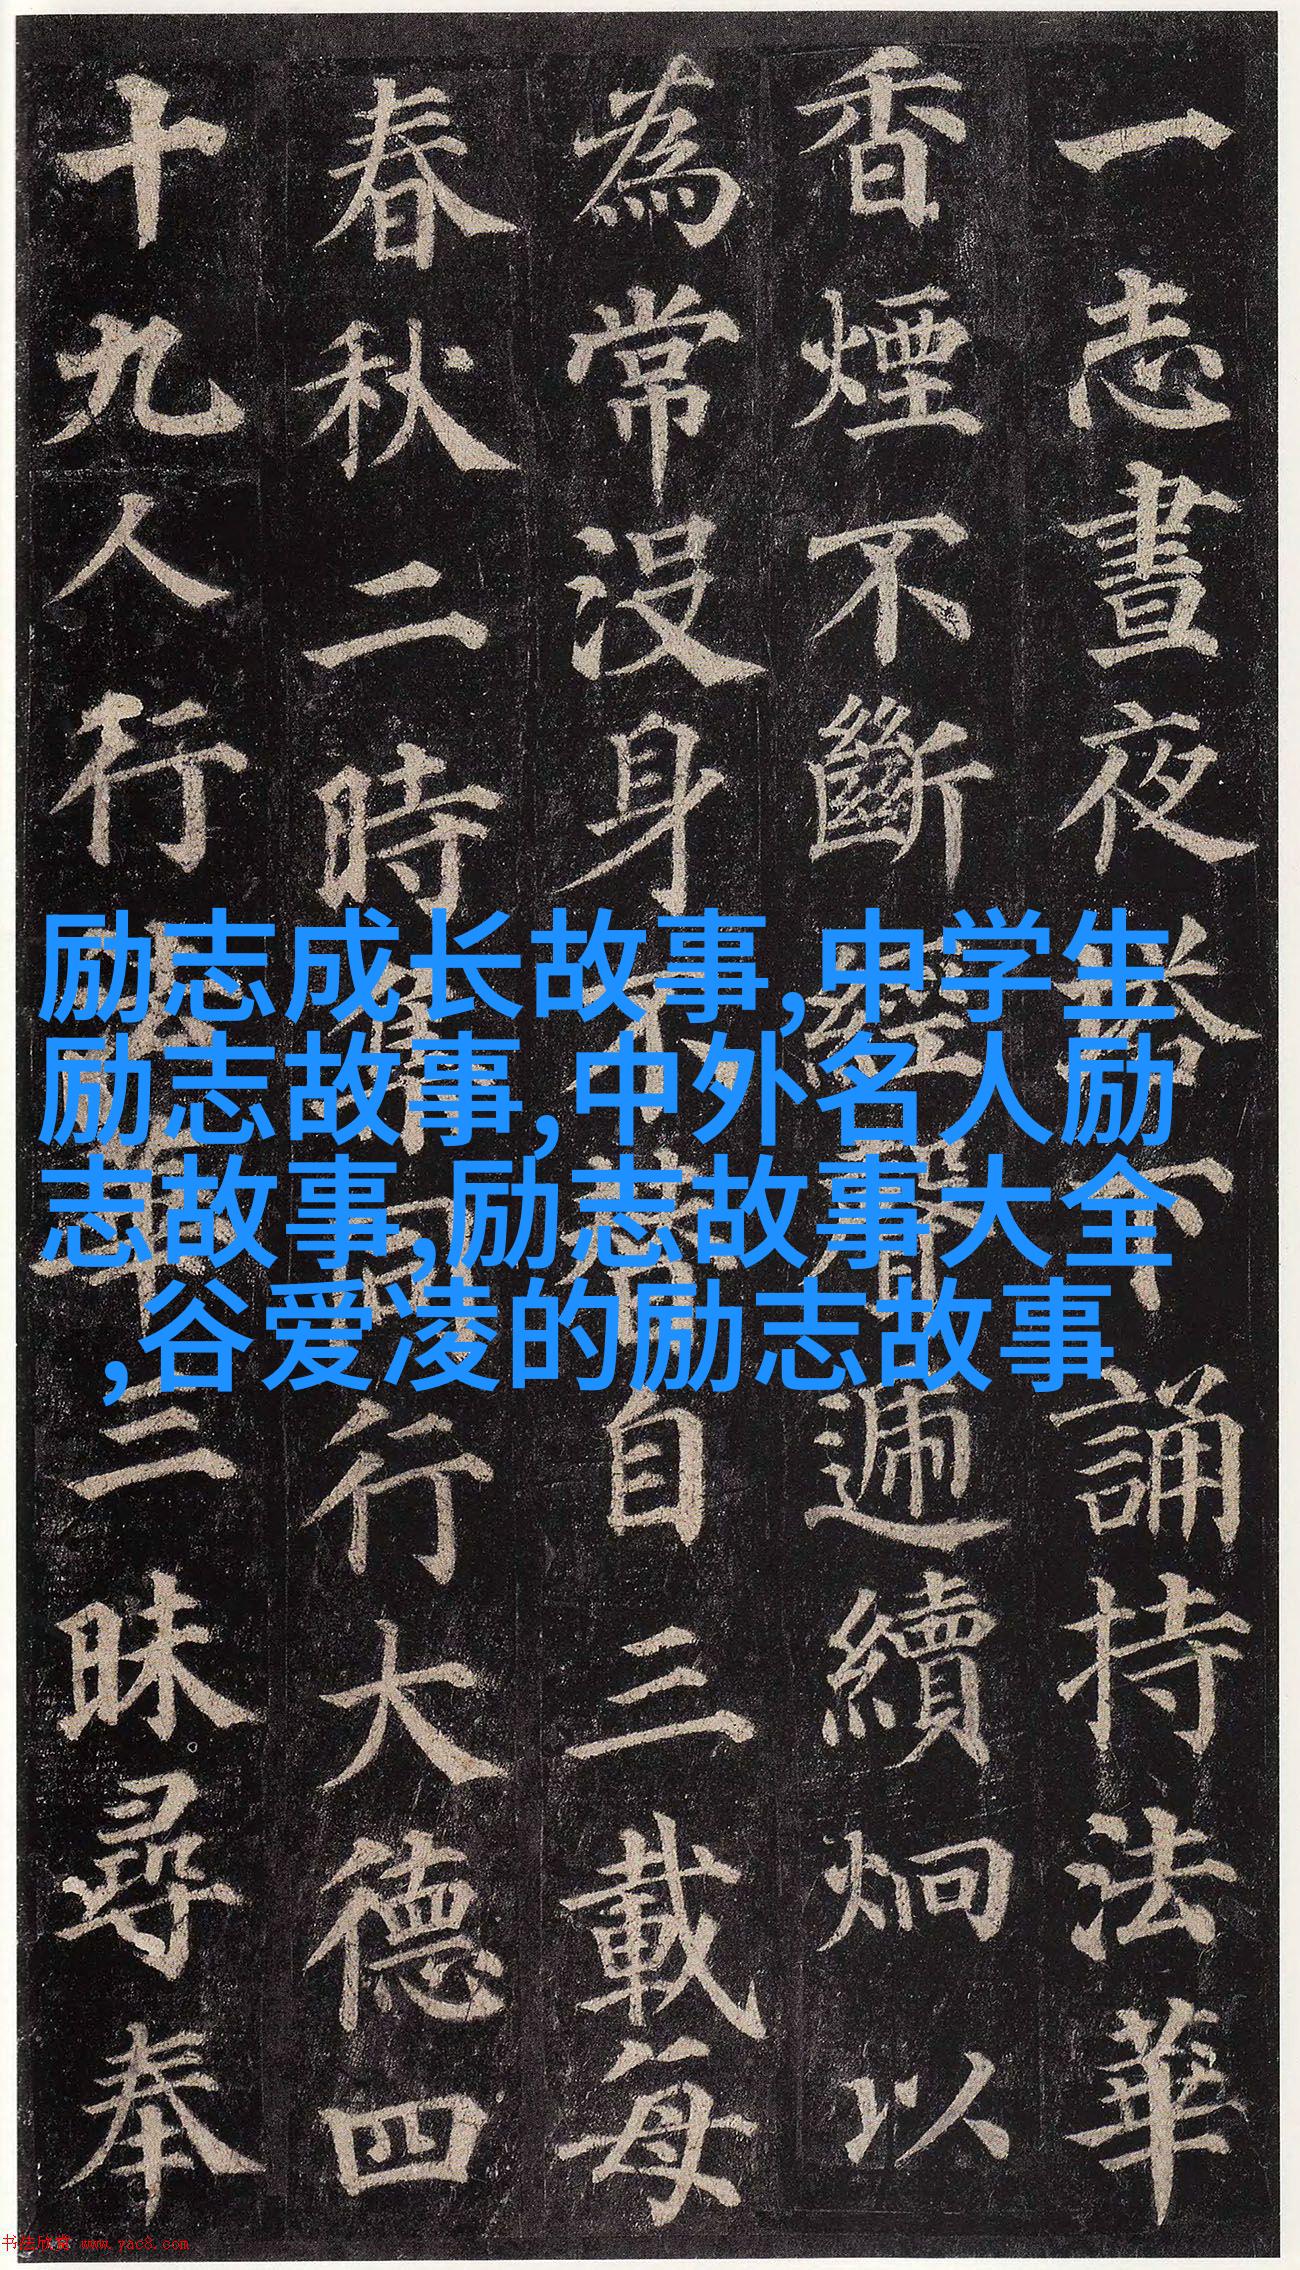 一志晝夜塔下誦持法華
香煙不斷經聲遞續炯以
為常沒身不替自三載每
春秋二時集同行大德四
十九人行法華三昧尋奉
励志成长故事,中学生
励志故事,中外名人励
志故事,励志故事大全
,谷爱凌的励志故事
书法欣赏 www.yac8.com